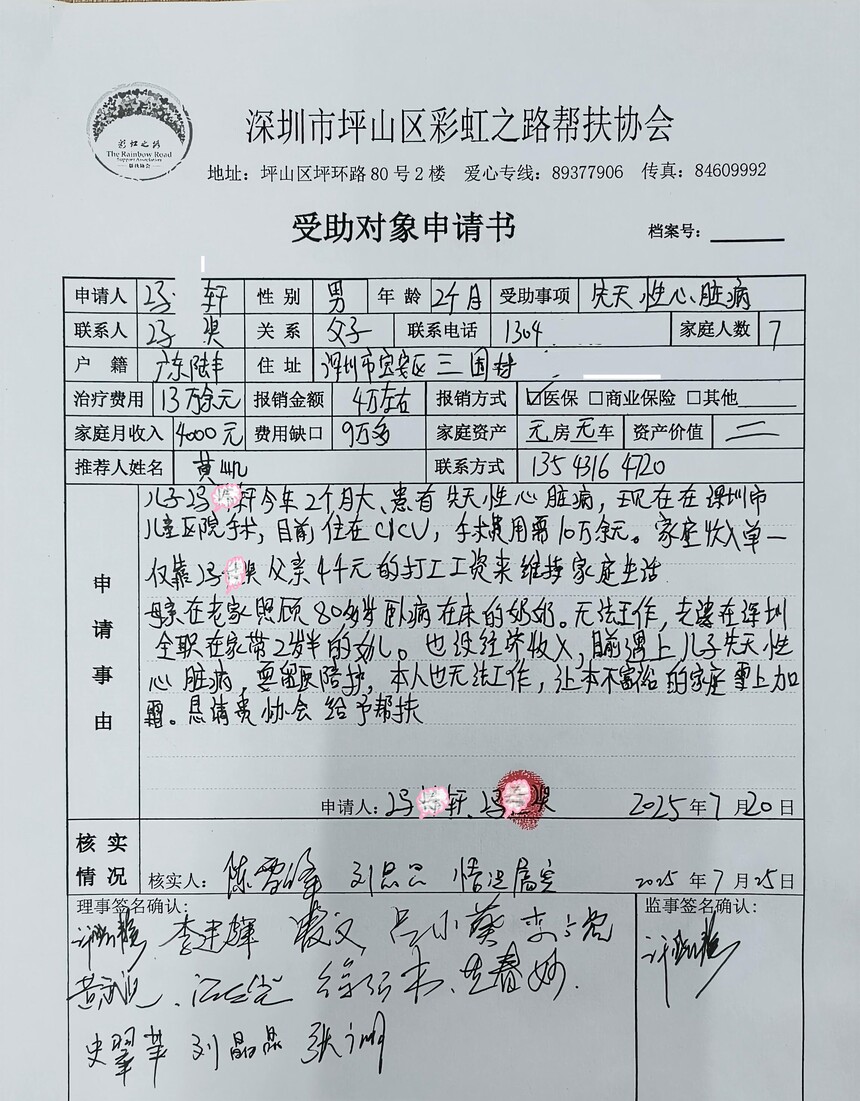 彩虹之路
The Rainbow Road
Support Association
帮扶协会
深圳市坪山区彩虹之路帮扶协会
地址：坪山区坪环路80号2楼 爱心专线：89377906 传真：84609992
受助对象申请书 档案号：
申请人 冯 轩 性别 男 年龄 2个月 受助事项 先天性心脏病
联系人 冯 关系 父子 联系电话 1304 家庭人数 7
户籍 广东陆丰 住址 深圳市宝安区三围村
治疗费用 13万余元 报销金额 4万左右 报销方式 ☑医保 □商业保险 □其他
家庭月收入 4000元 费用缺口 9万多 家庭资产 无房无车 资产价值
推荐人姓名 黄 联系方式 135 4316 4720
申请事由
儿子冯 轩今年2个月大、患有先天性心脏病，现在在深圳市
儿童医院手术，目前住在CICU，手术费用需10万余元。家庭收入单一
仅靠冯 父亲4千元的打工工资来维持家庭生活
母亲在老家照顾80多岁卧病在床的奶奶。无法工作，老婆在深圳
全职在家带2岁半的幼儿。也没经济收入，目前遇上儿子先天性
心脏病，要留医陪护，本人也无法工作，让本不富裕的家庭雪上加
霜。恳请贵协会给予帮扶
申请人：冯 轩、冯 2025年7月20日
核实情况
核实人： 陈雪峰 情况属实 2025年7月25日
理事签名确认： 监事签名确认：
李建辉 吕小葵
春妙
史翠苹 刘晶晶 张